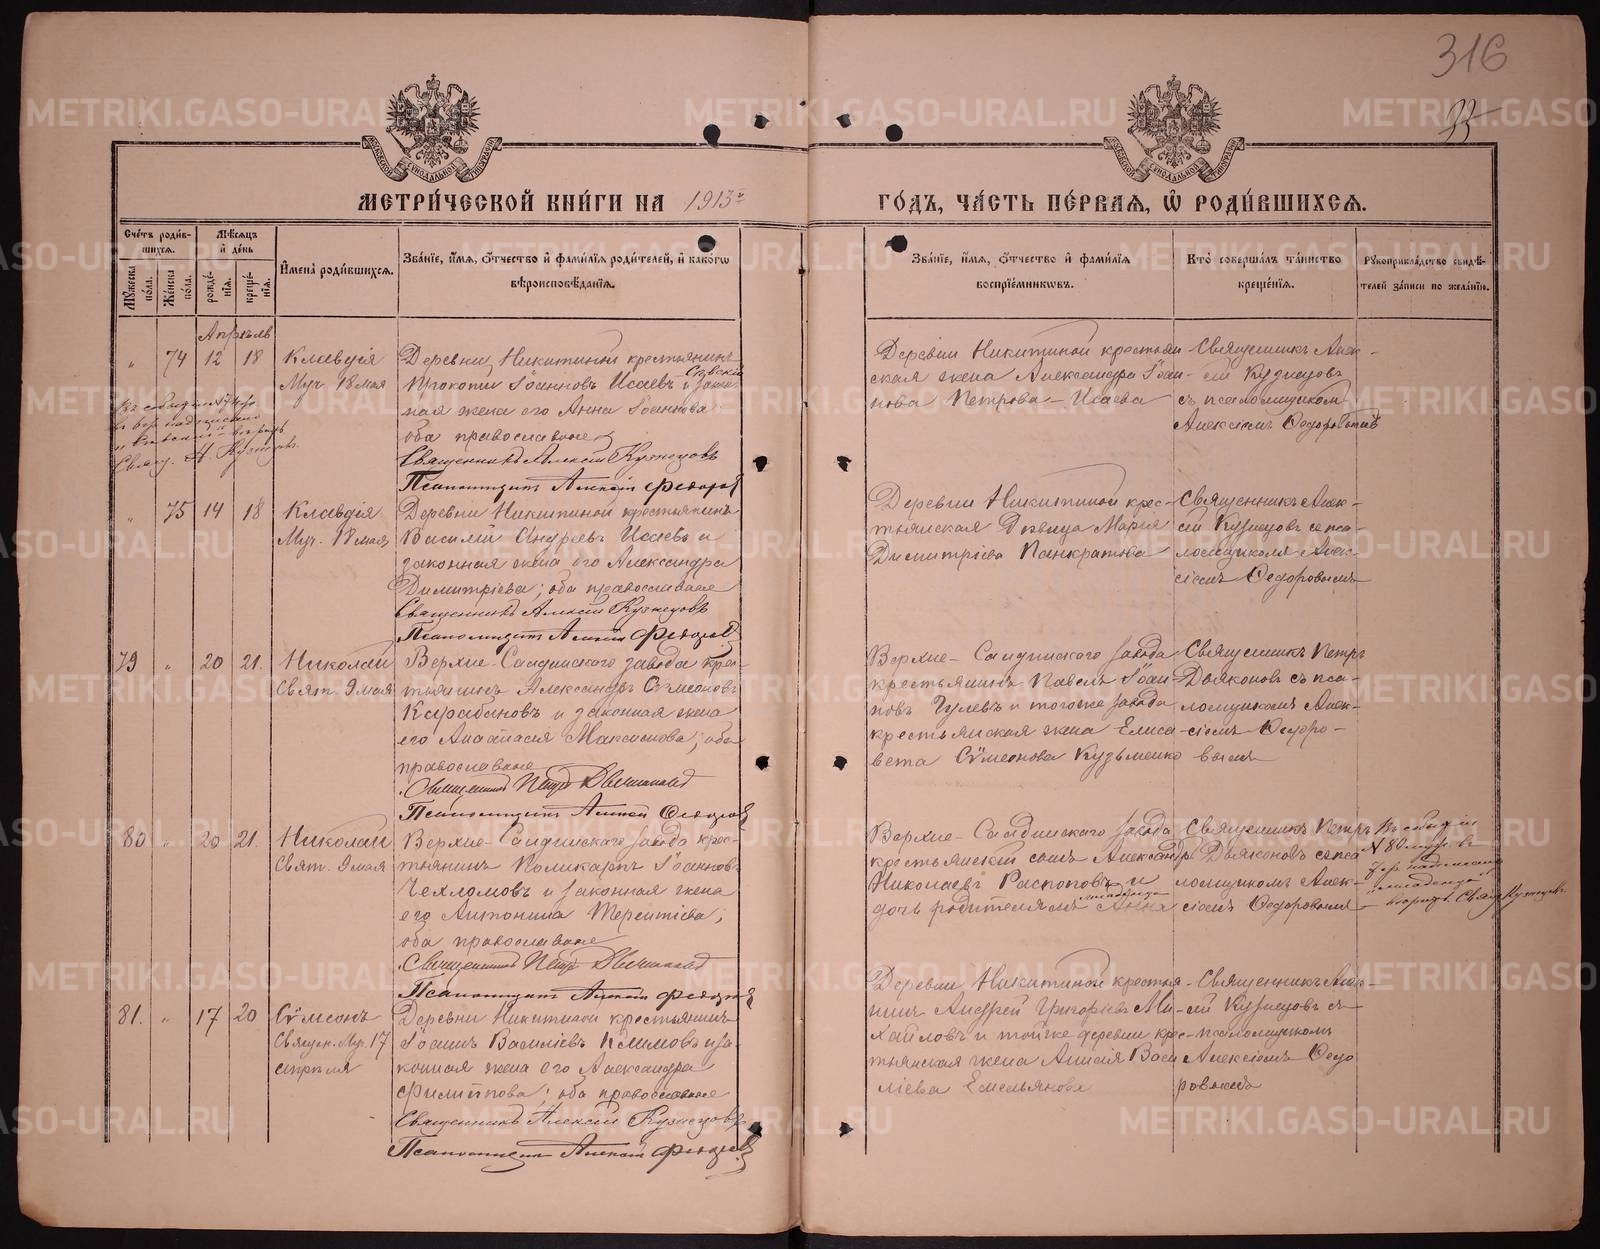 316
33
МЕТРИ́ЧЕСКОЙ КНИ́ГИ НА 1913й ГО́ДЪ, ЧА́СТЬ ПЕ́РВАЯ, Ѡ РОДИ́ВШИХСЯ.
Сче́тъ роди́вшихся.
Мꙋ́жеска по́ла.
Же́нска по́ла.
Мѣ́сяцъ и де́нь
рожде́нїя.
креще́нїя.
И҆мена̀ роди́вшихся.
Зва́нїе, и҆́мѧ, ѻ҆́тчество и҆ фами́лїѧ роди́телей, и҆ како́гѡ вѣроисповѣ́данїѧ.
Зва́нїе, и҆́мѧ, ѻ҆́тчество и҆ фами́лїѧ воспрїе́мникѡвъ.
Кто̀ соверша́лъ та́инство креще́нїѧ.
Рꙋкоприкла́дство свидѣ́телей за́писи по жела́нїю.
Апрѣль
" 74 12 18
Клавдія
Муч. 18 мая
Деревни Никитиной крестьянинъ
Прокопій Іоанновъ Исаевъ и закон-
ная жена его Анна Іоаннова
оба православные
Священникъ Алексій Кузнецовъ
Псаломщикъ Алексій Федоровъ
Деревни Никитиной крестьян-
ская жена Александра Іоан-
нова Петрова - Исаева
Священникъ Алек-
сій Кузнецовъ
съ псаломщикомъ
Алексіемъ Ѳедоровымъ
" 75 14 18
Клавдія
Муч. 18 мая
Деревни Никитиной крестьянинъ
Василій Андреевъ Исаевъ и
законная жена его Александра
Димитріева; оба православные
Священникъ Алексій Кузнецовъ
Псаломщикъ Алексій Федоровъ
Деревни Никитиной крес-
тьянская дѣвица Марія
Димитріева Панкратова
Священникъ Алек-
сій Кузнецовъ съ пса-
ломщикомъ Алек-
сіемъ Ѳедоровымъ
79 " 20 21.
Николай
Свят. 9 мая
Верхне-Салдинскаго завода крес-
тьянинъ Александръ Сѵмеоновъ
Карабановъ и законная жена
его Анастасія Максимова; оба
православные
Священникъ Петръ Дьяконовъ
Псаломщикъ Алексій Ѳедоровъ
Верхне-Салдинскаго завода
крестьянинъ Павелъ Іоан-
новъ Гулевъ и тогоже завода
крестьянская жена Елиса-
вета Сѵмеонова Кузьменко
Священникъ Петръ
Дьяконовъ съ пса-
ломщикомъ Алек-
сіемъ Ѳедоро-
вымъ
80 " 20 21.
Николай
Свят. 9 мая
Верхне-Салдинскаго завода крес-
тьянинъ Поликарпъ Іоанновъ
Чехломовъ и законная жена
его Антонина Терентіева;
оба православные
Священникъ Петръ Дьяконовъ
Псаломщикъ Алексій Федоровъ
Верхне-Салдинскаго завода
крестьянскій сынъ Александръ
Николаевъ Распоповъ и
дочь родителямъ Анна
Священникъ Петръ
Дьяконовъ съ пса-
ломщикомъ Алек-
сіемъ Ѳедоровымъ
81. " 17 20
Сѵмеонъ
Священ. Муч. 17
апрѣля
Деревни Никитиной крестьянинъ
Іоаннъ Василіевъ Климовъ и за-
конная жена его Александра
Филиппова; оба православные
Священникъ Алексій Кузнецовъ
Псаломщикъ Алексій Федоровъ
Деревни Никитиной крестья-
нинъ Андрей Григорьевъ Ми-
хайловъ и тойже деревни крес-
тьянская жена Анисія Васи-
ліева Емельянова
Священникъ Алек-
сій Кузнецовъ съ
псаломщикомъ
Алексіемъ Ѳедо-
ровымъ
METRIKI.GASO-URAL.RU